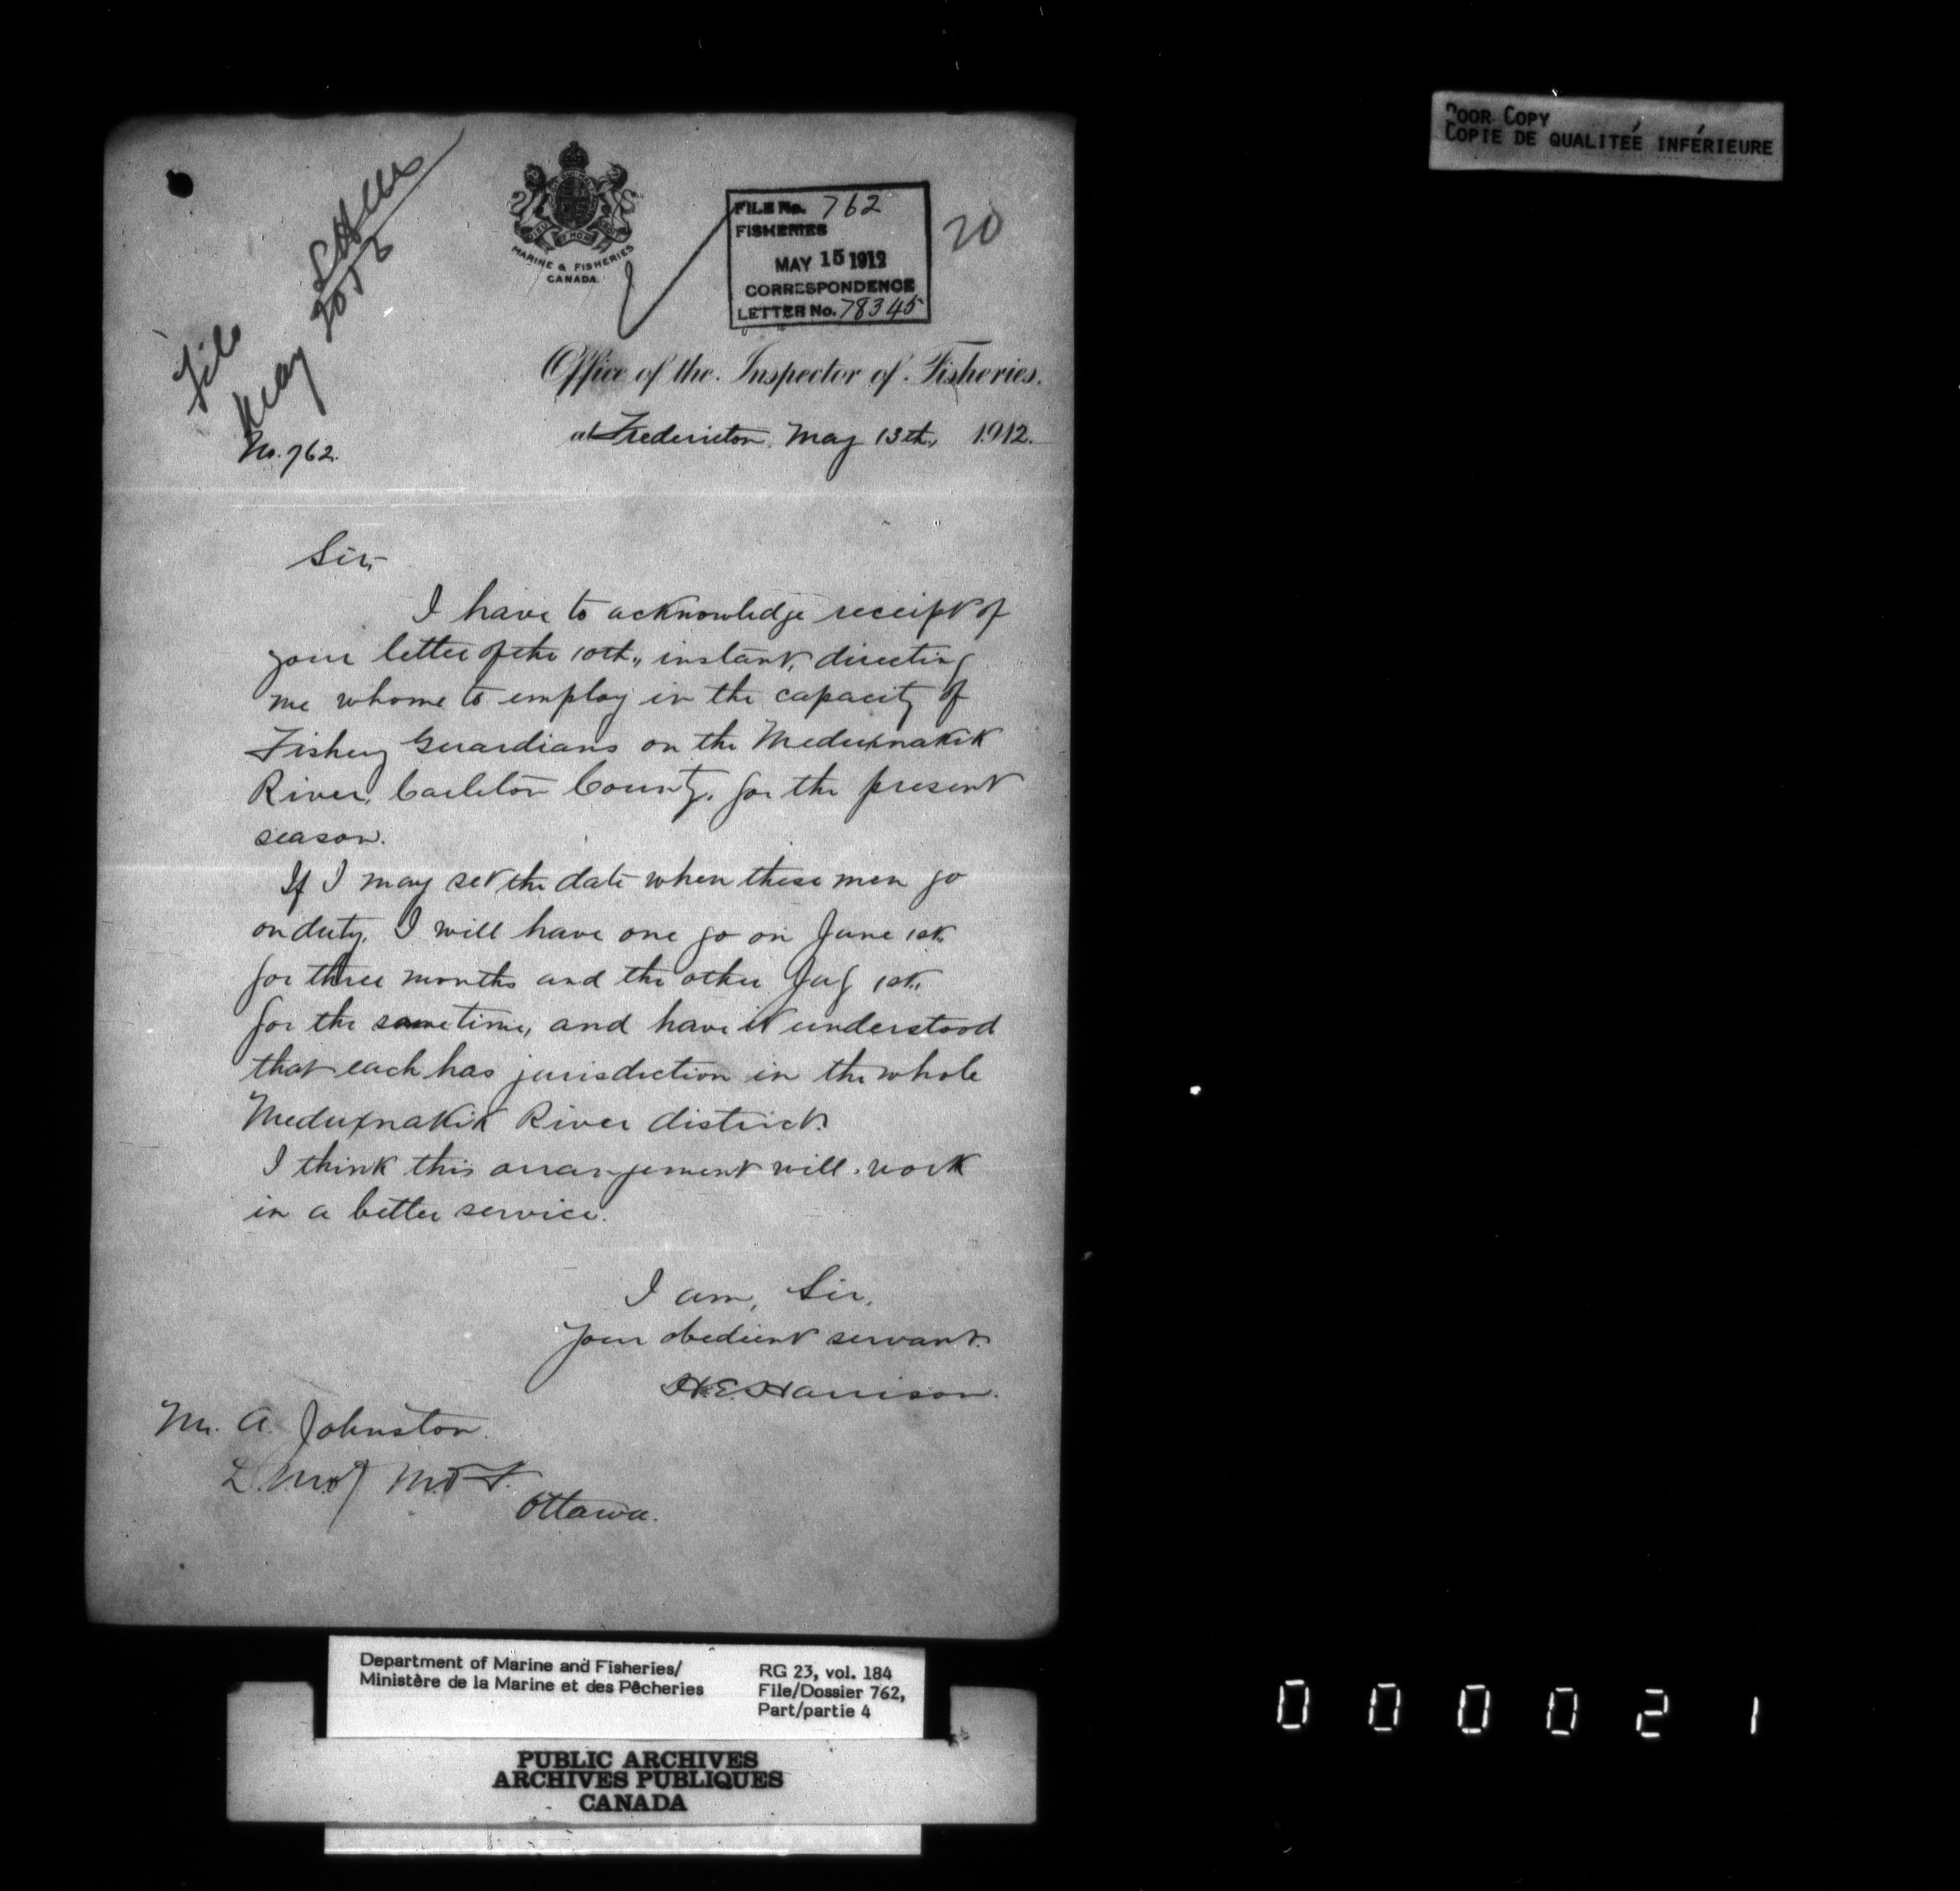 POOR COPY
COPIE DE QUALITÉE INFÉRIEURE
File
May 20th
MARINE & FISHERIES
CANADA.
FILE No. 762
FISHERIES
MAY 15 1912
CORRESPONDENCE
LETTER No. 78345
20
Office of the Inspector of Fisheries.
at Fredericton. May 13th, 1912.
No. 762.
Sir,
I have to acknowledge receipt of
your letter of the 10th., instant, directing
me whome to employ in the capacity of
Fishery Guardians on the Meduxnakik
River, Carleton County, for the present
season.
If I may set the date when these men go
on duty, I will have one go on June 1st.
for three months and the other July 1st.
for the same time, and have it understood
that each has jurisdiction in the whole
Meduxnakik River district.
I think this arrangement will work
in a better service.
I am, Sir,
Your obedient servant.
H.E. Harrison.
Mr. A. Johnston.
D. M. of M. & F.
Ottawa.
Department of Marine and Fisheries/
Ministère de la Marine et des Pêcheries
RG 23, vol. 184
File/Dossier 762,
Part/partie 4
PUBLIC ARCHIVES
ARCHIVES PUBLIQUES
CANADA
000021